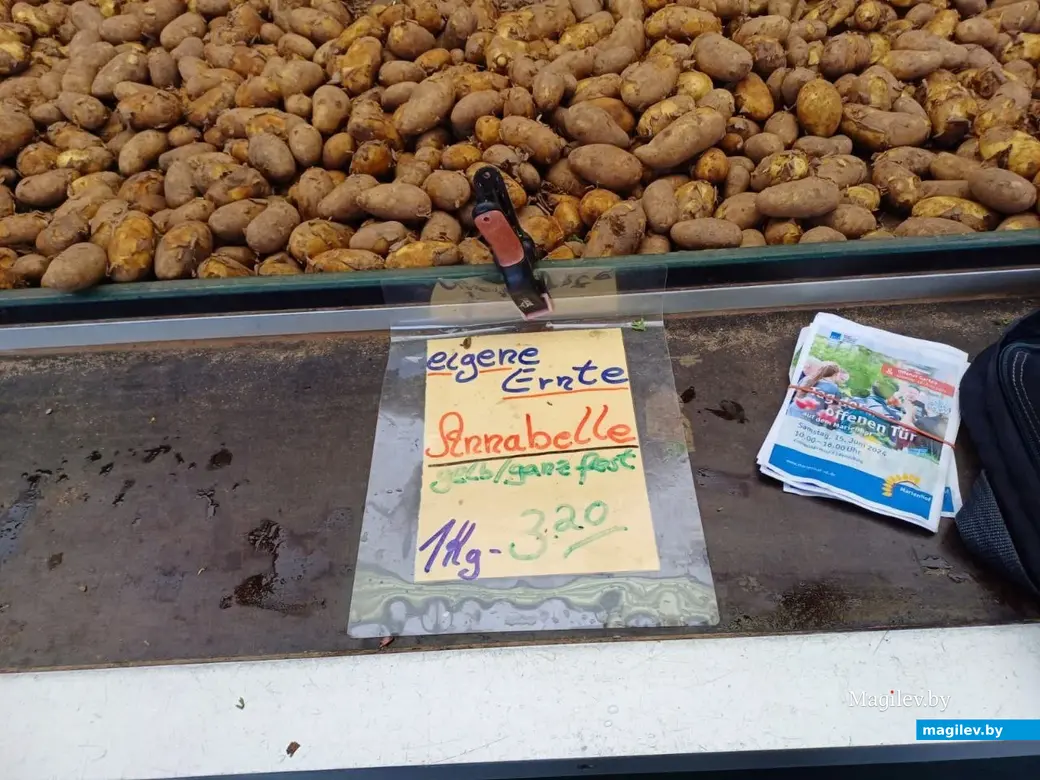 eigene
Ernte
Annabelle
gelb/ganz fest
1 Kg - 3.20
offenen Tür
Samstag, 15. Juni 2024
10.00–16.00 Uhr
Marienhof
Magilev.by
magilev.by